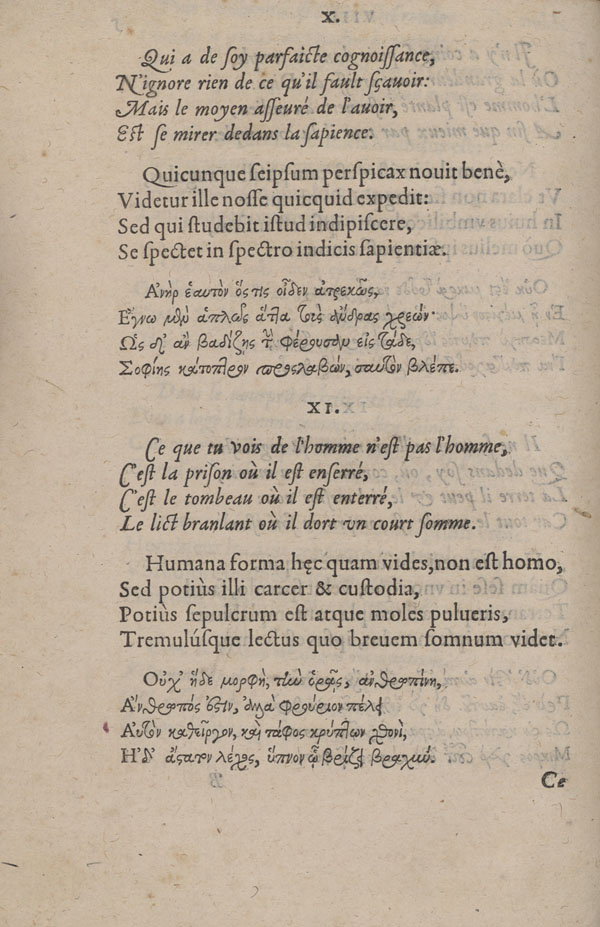 X.
Qui a de ſoy parfaicte cognoiſſance,
N'ignore rien de ce qu'il fault ſçauoir:
Mais le moyen aſſeuré de l'auoir,
Est ſe mirer dedans la ſapience.
Quicunque ſeipſum perſpicax nouit benè,
Videtur ille noſſe quicquid expedit:
Sed qui ſtudebit iſtud indipiſcere,
Se ſpectet in ſpectro indicis ſapientiæ.
Ἀνὴρ ἑαυτὸν ὅστις οἶδεν ἀτρεκῶς,
Ἔγνω μὲν ἁπλῶς ἅπαντα τοὺς ἄνδρας χρεών·
Ὡς δ' ἂν βαδίζῃς τὴν φέρουσαν εἰς τάδε,
Σοφίης κάτοπτρον προσλαβών, σαυτὸν βλέπε.
XI.
Ce que tu vois de l'homme n'eſt pas l'homme,
C'eſt la priſon où il eſt enſerré,
C'eſt le tombeau où il eſt enterré,
Le lict branlant où il dort vn court ſomme.
Humana forma hęc quam vides, non eſt homo,
Sed potiùs illi carcer & cuſtodia,
Potiùs ſepulcrum eſt atque moles pulueris,
Tremulúſque lectus quo breuem ſomnum videt.
Οὐχ' ἥδε μορφὴ, τὴν ὁρᾷς, ἀνθρωπίνη,
Ἄνθρωπός ἐστιν, ἀλλὰ φρούριον πέλει
Αὐτὸν καθεῖργον, καὶ τάφος κρύπτων χθονὶ,
Ἠδ' ἄστατον λέχος, ὕπνον ᾧ βρίζει βραχύν.
Ce